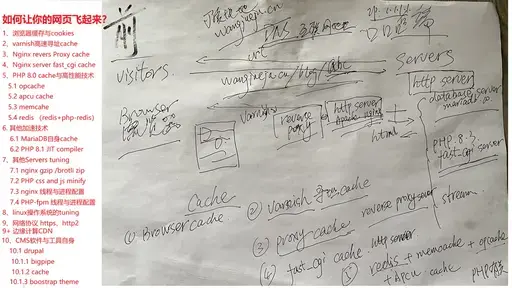 如何让你的网页飞起来?
1、浏览器缓存与cookies
2、varnish高速寻址cache
3、Nginx revers Proxy cache
4、Nginx server fast_cgi cache
5、PHP 8.0 cache与高性能技术
5.1 opcache
5.2 apcu cache
5.3 memcahe
5.4 redis (redis+php-redis)
6.其他加速技术
6.1 MariaDB自身cache
6.2 PHP 8.1 JIT compiler
7、其他Servers tuning
7.1 nginx gzip /brotli zip
7.2 PHP css and js minify
7.3 nginx 线程与进程配置
7.4 PHP-fpm 线程与进程配置
8、linux操作系统的tuning
9、网络协议 https, http2
9+ 边缘计算CDN
10、CMS软件与工具自身
10.1 drupal
10.1.1 bigpipe
10.1.2 cache
10.1.3 boostrap theme
前
DNS
visitors
url
Servers
Browser
浏览器
Varnish
reverse proxy
http server
Apache nginx
html
http server
database server
mariadb
PHP 8.3
fast_cgi server
stream
Cache
① Browser cache
② varnish cache
③ proxy cache
reverse proxy server
④ fast_cgi cache
http server
⑤ redis + memcache + opcache
+ Apcu cache